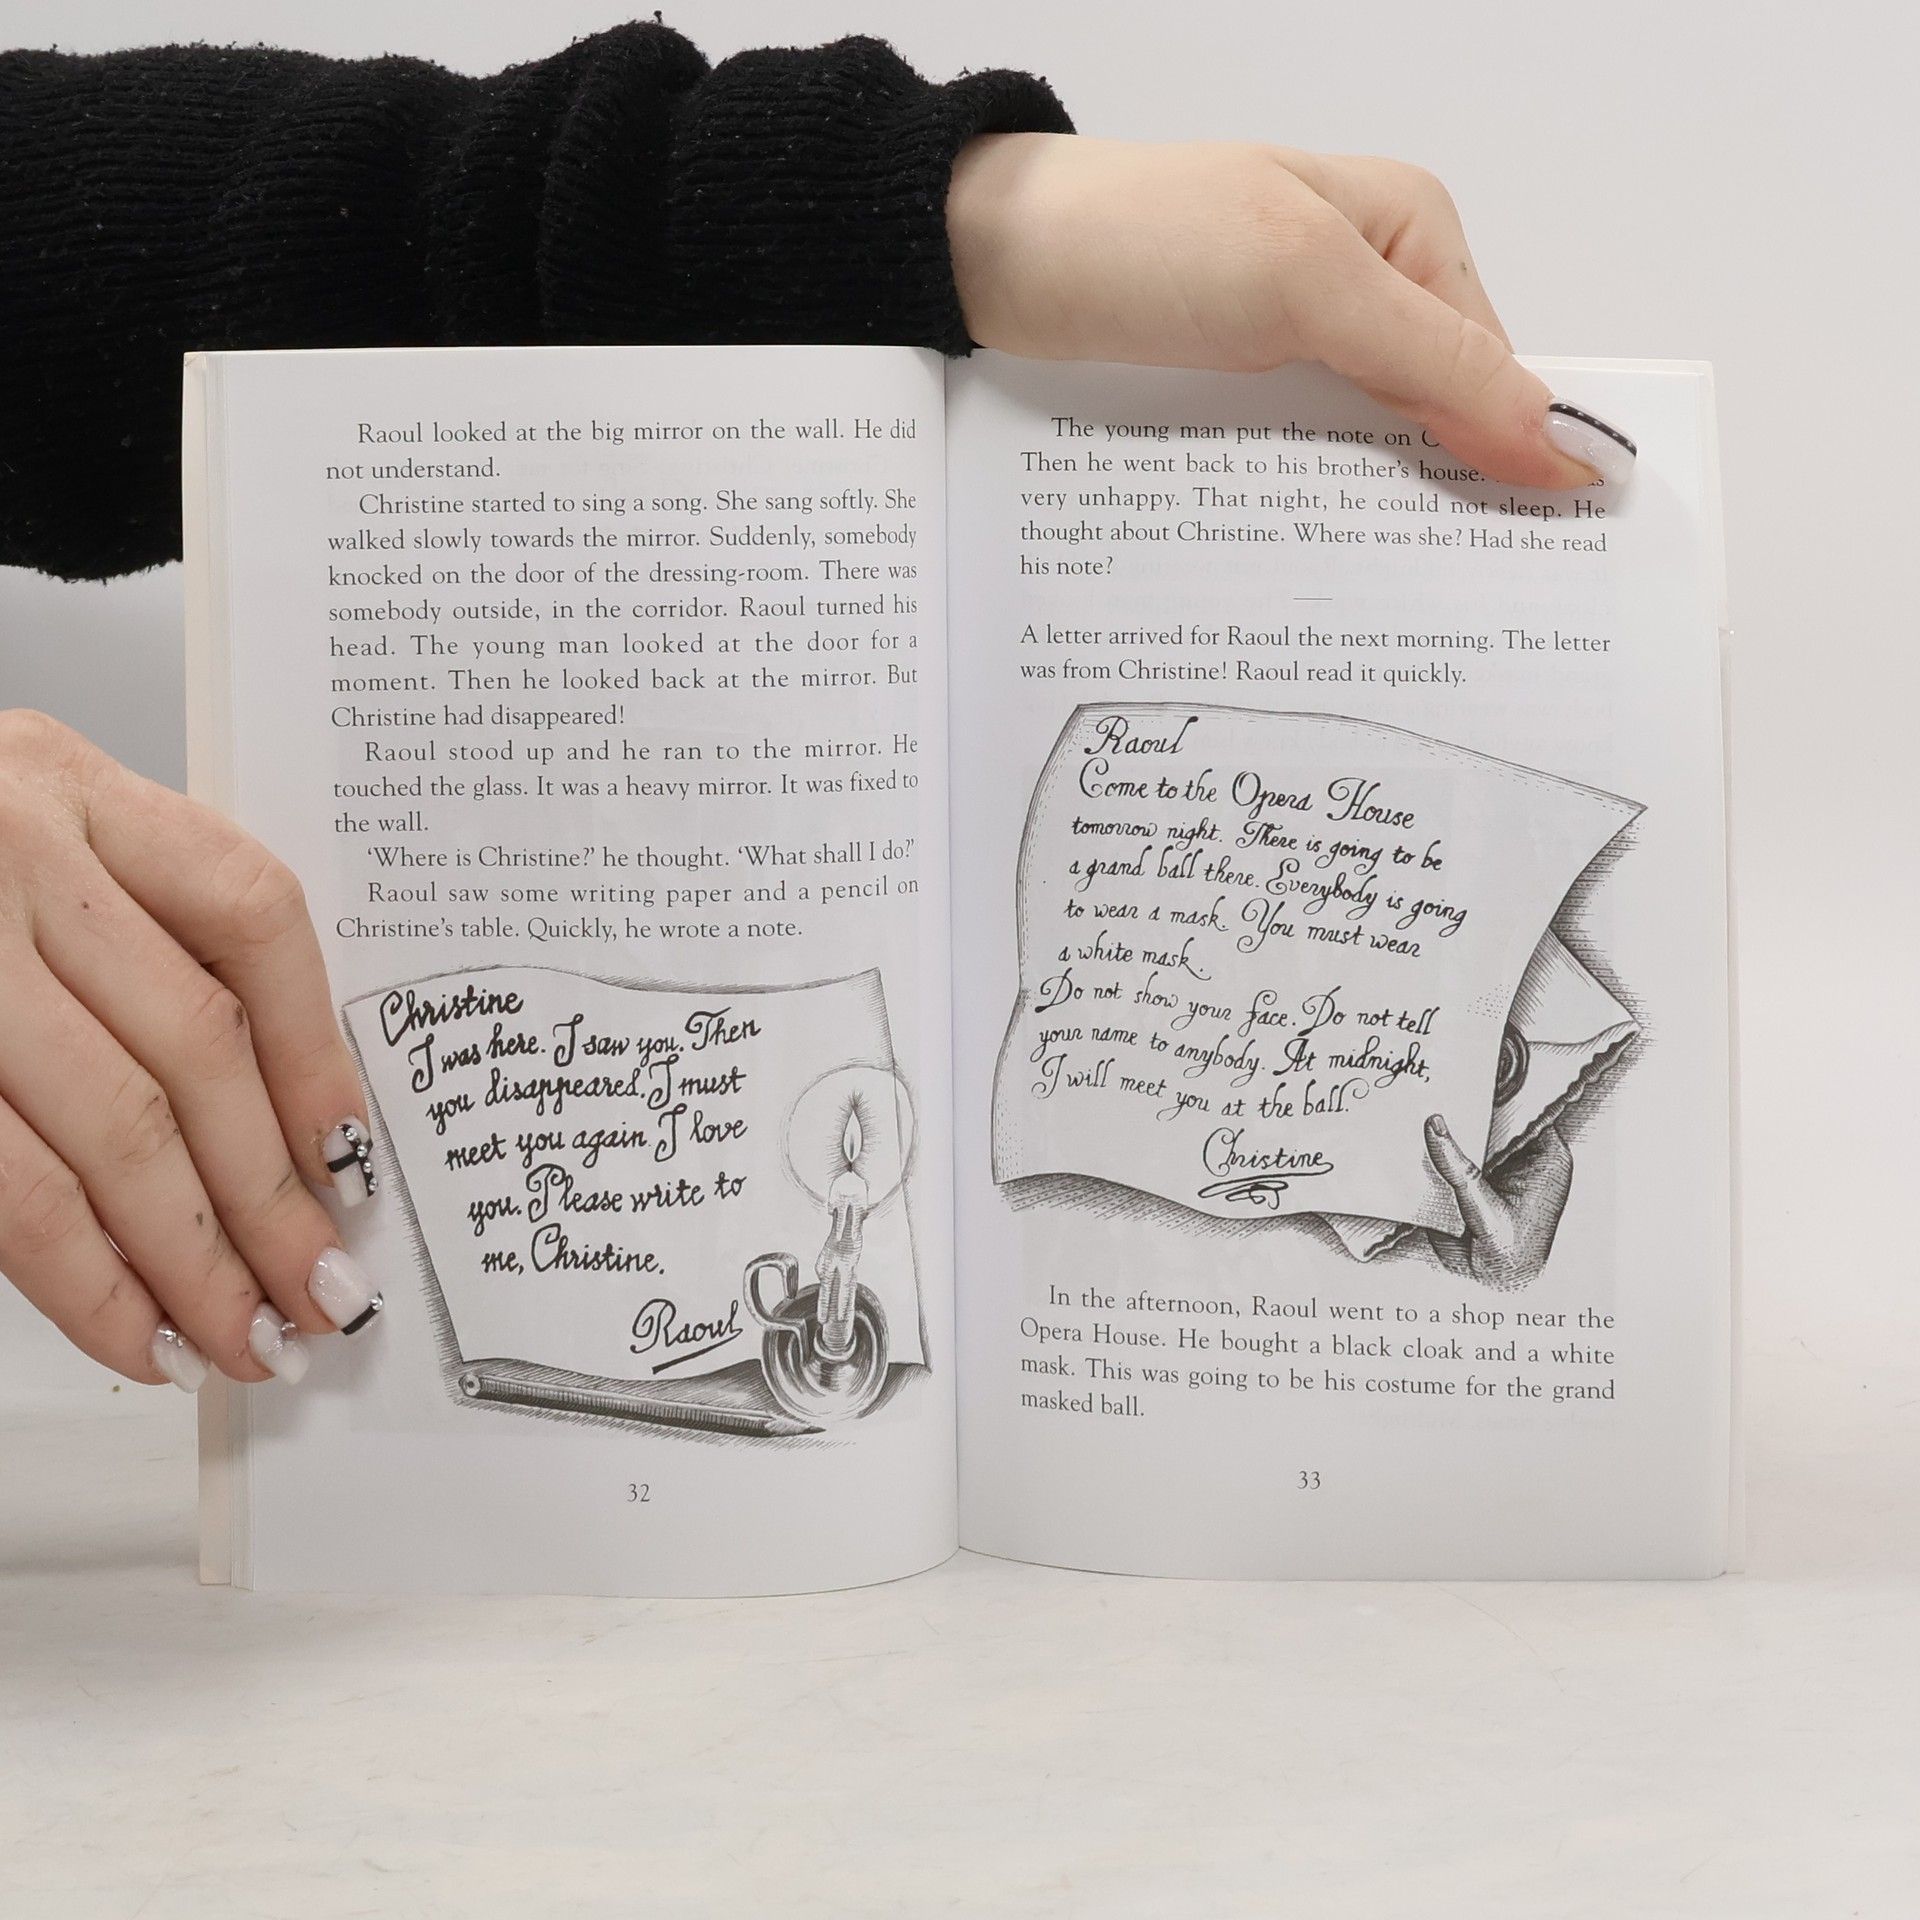 Raoul looked at the big mirror on the wall. He did
not understand.
Christine started to sing a song. She sang softly. She
walked slowly towards the mirror. Suddenly, somebody
knocked on the door of the dressing-room. There was
somebody outside, in the corridor. Raoul turned his
head. The young man looked at the door for a
moment. Then he looked back at the mirror. But
Christine had disappeared!
Raoul stood up and he ran to the mirror. He
touched the glass. It was a heavy mirror. It was fixed to
the wall.
‘Where is Christine?’ he thought. ‘What shall I do?’
Raoul saw some writing paper and a pencil on
Christine’s table. Quickly, he wrote a note.
Christine
I was here. I saw you. Then
you disappeared. I must
meet you again. I love
you. Please write to
me, Christine.
Raoul
32
The young man put the note on
Then he went back to his brother’s house.
very unhappy. That night, he could not sleep. He
thought about Christine. Where was she? Had she read
his note?
A letter arrived for Raoul the next morning. The letter
was from Christine! Raoul read it quickly.
Raoul
Come to the Opera House
tomorrow night. There is going to be
a grand ball there. Everybody is going
to wear a mask. You must wear
a white mask.
Do not show your face. Do not tell
your name to anybody. At midnight,
I will meet you at the ball.
Christine
In the afternoon, Raoul went to a shop near the
Opera House. He bought a black cloak and a white
mask. This was going to be his costume for the grand
masked ball.
33